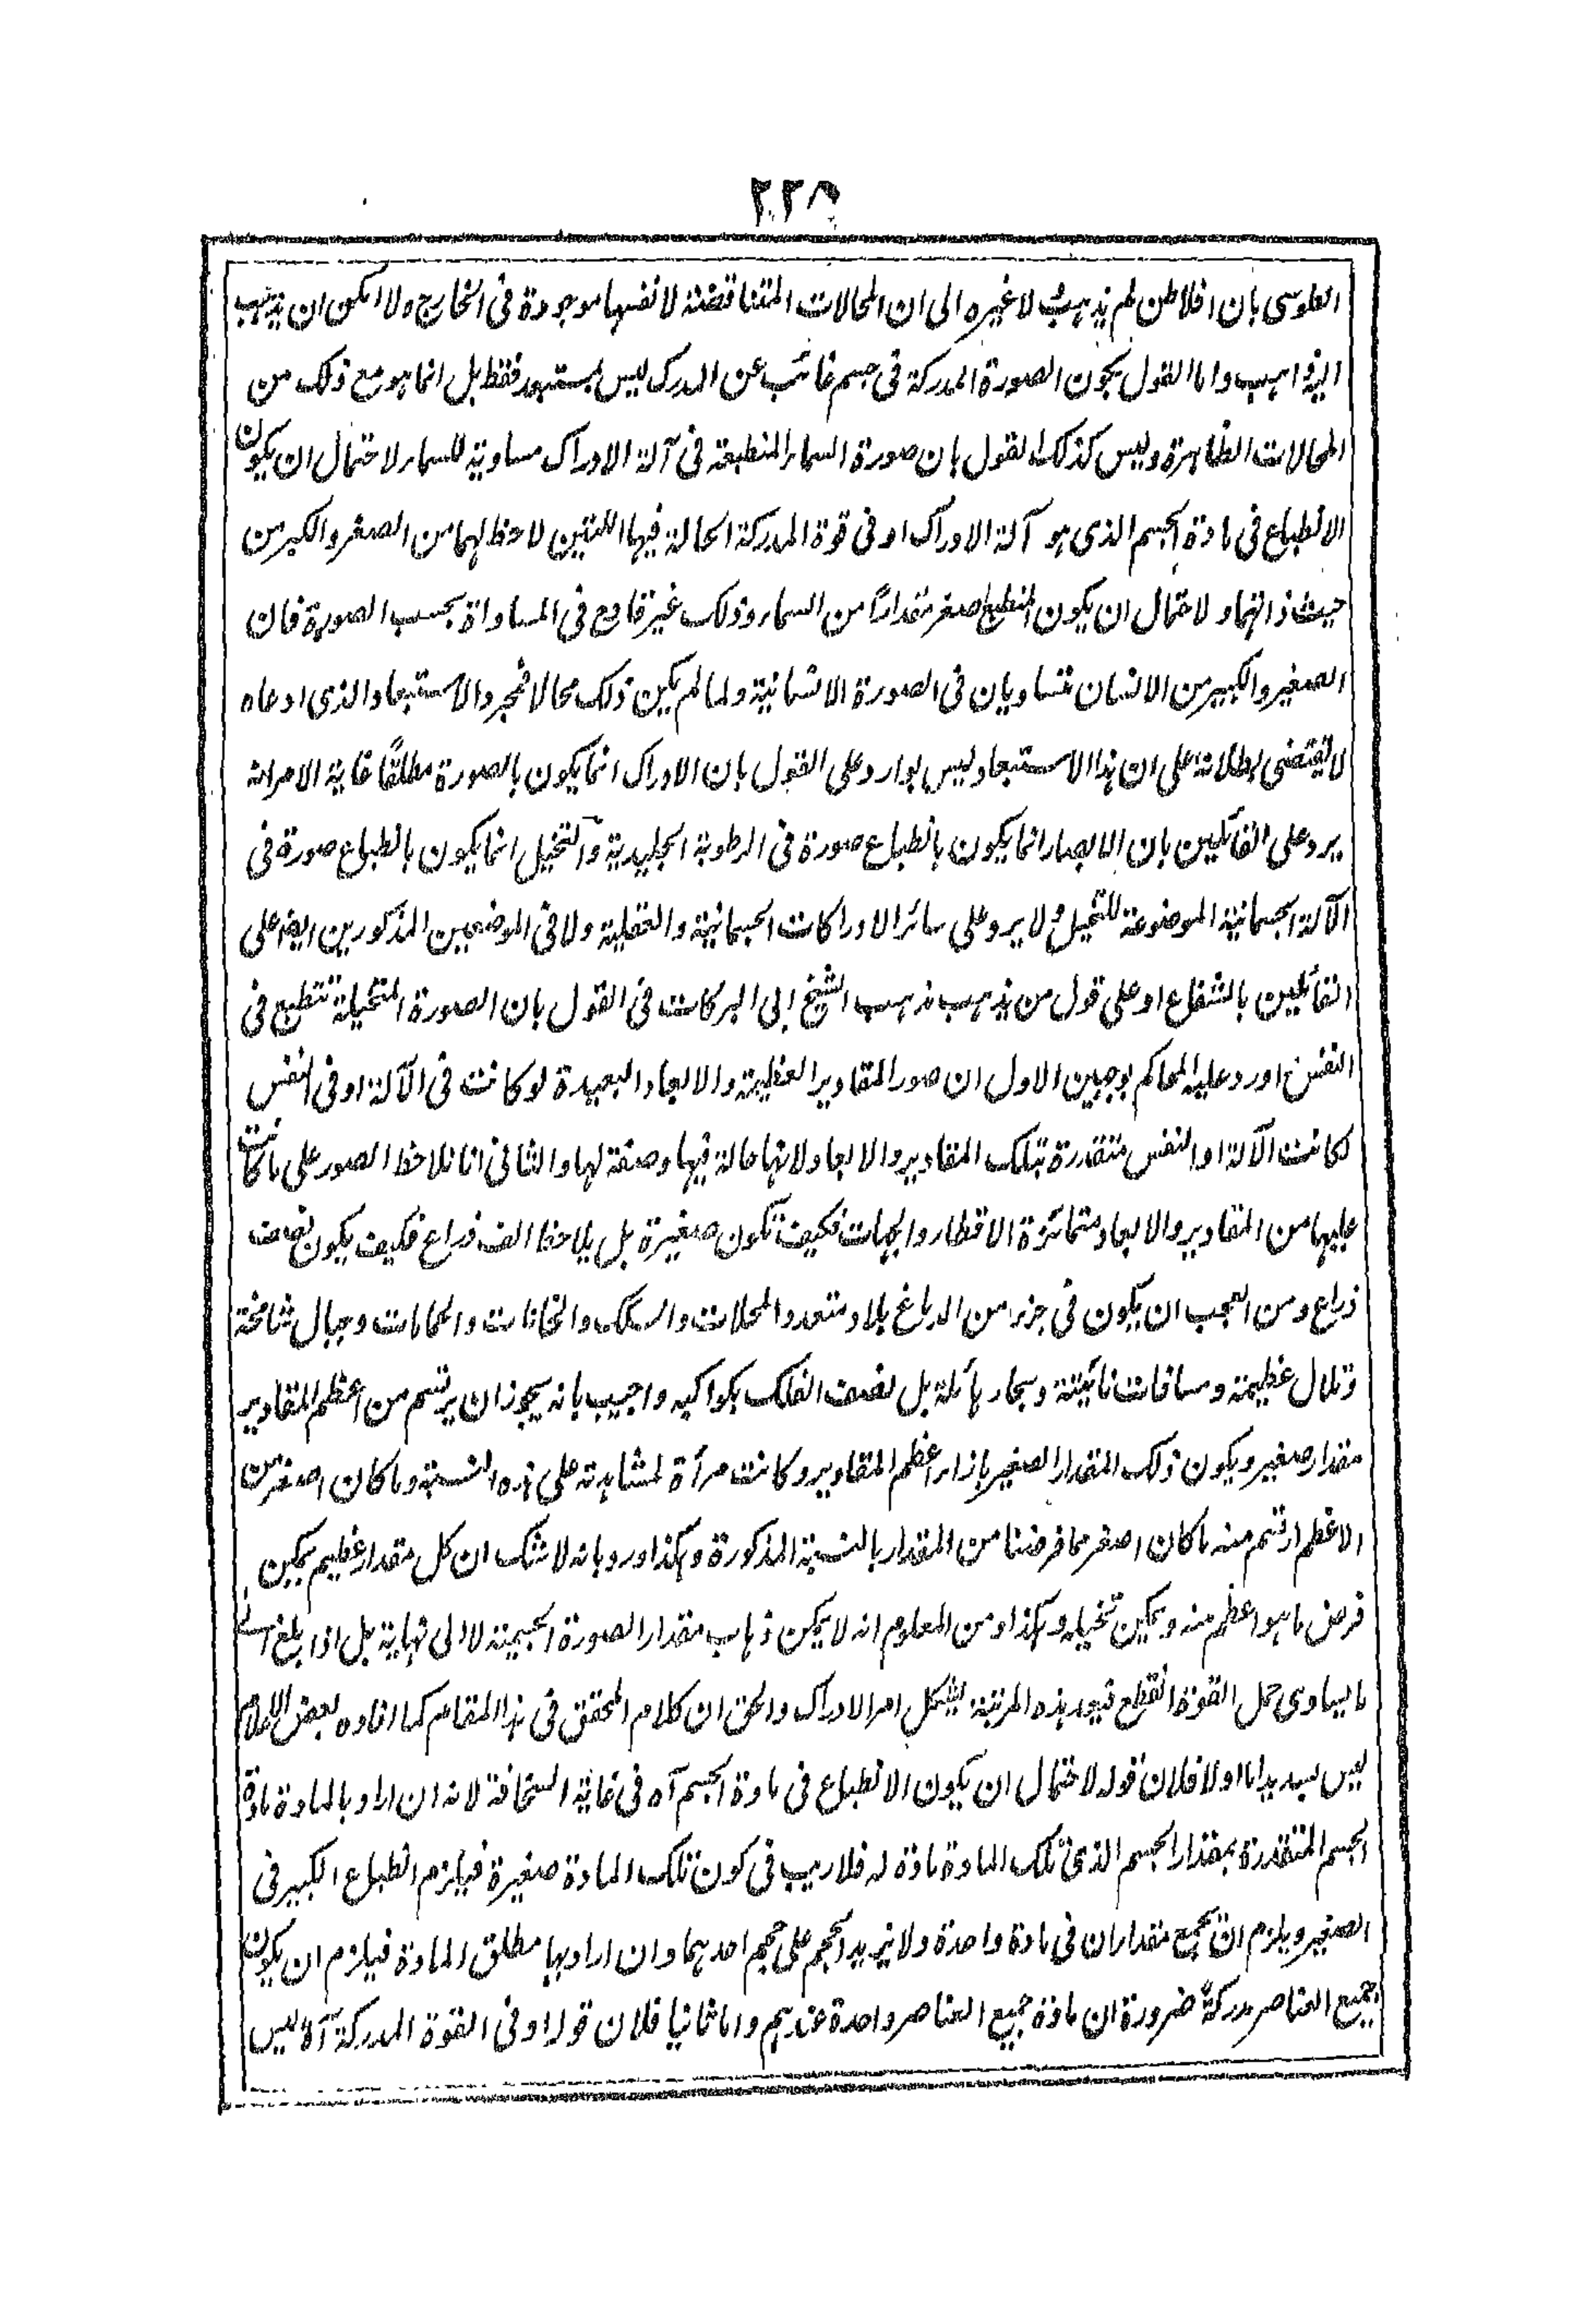 ٢٢٨
الطوسى بان افلاطن لم يذهب لا غيره الى ان المحالات المتناقضة لانفسها موجودة فى الخارج ولا امكن ان يذهب
اليه ذاهب واما القول بكون الصورة المدركة فى جسم غائب عن المدرك ليس بمستبعد فقط بل انما هو مع ذلك من
المحالات الظاهرة وليس كذلك القول بان صورة السماء المنطبعة فى آلة الادراك مساوية للسماء لاحتمال ان يكون
الانطباع فى مادة الجسم الذى هو آلة الادراك او فى قوة المدركة الحالة فيها اللتين لا حظ لهما من الصغر والكبر من
حيث ذاتهما ولاحتمال ان يكون المنطبع اصغر مقدارًا من السماء وذلك غير قادح فى المساواة بحسب الصورة فان
الصغير والكبير من الانسان متساويان فى الصورة الانسانية ولما لم يكن ذلك محالا فمجرد الاستبعاد الذى ادعاه
لا يقتضى بطلانه على ان هذا الاستبعاد ليس بوارد على القول بان الادراك انما يكون بالصورة مطلقًا غاية الامر انه
يرد على القائلين بان الابصار انما يكون بانطباع صورة فى الرطوبة الجليدية والتخيل انما يكون بانطباع صورة فى
الآلة الجسمانية الموضوعة للتخيل ولا يرد على سائر الادراكات الجسمانية والعقلية ولا فى الموضعين المذكورين ايضا على
القائلين بالشعاع او على قول من يذهب مذهب الشيخ ابى البركات فى القول بان الصورة المتخيلة تنطبع فى
النفس اورد عليه المحاكم بوجهين الاول ان صور المقادير العظيمة والابعاد البعيدة لو كانت فى الآلة او فى النفس
لكانت الآلة او النفس متقدرة بتلك المقادير والابعاد لانها حالة فيها وصفة لها والثانى انا نلاحظ الصور على ما كانت
عليها من المقادير والابعاد متمائزة الاقطار والجهات فكيف تكون صغيرة بل يلاحظ الف ذراع فكيف يكون نصف
ذراع ومن العجب ان يكون فى جزء من الدماغ بلاد متعدد المحلات والسكك والخانات والحمامات وجبال شامخة
وتلال عظيمة ومسافات نائيتة وبحار هائلة بل نصف الفلك بكواكبه واجيب بانه يجوز ان يرتسم من اعظم المقادير
مقدار صغير ويكون ذلك المقدار الصغير بازاء اعظم المقادير وكانت مرآة لمشاهدته على هذه النسبة وما كان اصغر من
الاعظم ارتسم منه ما كان اصغر مما فرضنا من المقدار بالنسبة المذكورة وهكذا ورد بانه لا شك ان كل مقدار عظيم يمكن
فرض ما هو اعظم منه ويمكن تخيله وهكذا ومن المعلوم انه لا يمكن ذهاب مقدار الصورة الجسمية لا الى نهاية بل اذا بلغ الى
ما يساوى حمل القوة انقطع فبعد هذه المرتبة يشكل امر الادراك والحق ان كلام المحقق فى هذا المقام كما افاده بعض الاعلام
ليس بسديد اما اولا فلان قوله لاحتمال ان يكون الانطباع فى مادة الجسم آه فى غاية السخافة لانه ان اراد بالمادة مادة
الجسم المتقدرة بمقدار الجسم الذى تلك المادة مادة له فلا ريب فى كون تلك المادة صغيرة فيلزم انطباع الكبير فى
الصغير ويلزم ان يجمع مقداران فى مادة واحدة ولا يزيد الحجم على حجم احدهما وان اراد بها مطلق المادة فيلزم ان يكون
جميع العناصر مدركة ضرورة ان مادة جميع العناصر واحدة عندهم واما ثانيا فلان قوله او فى القوة المدركة آه ليس